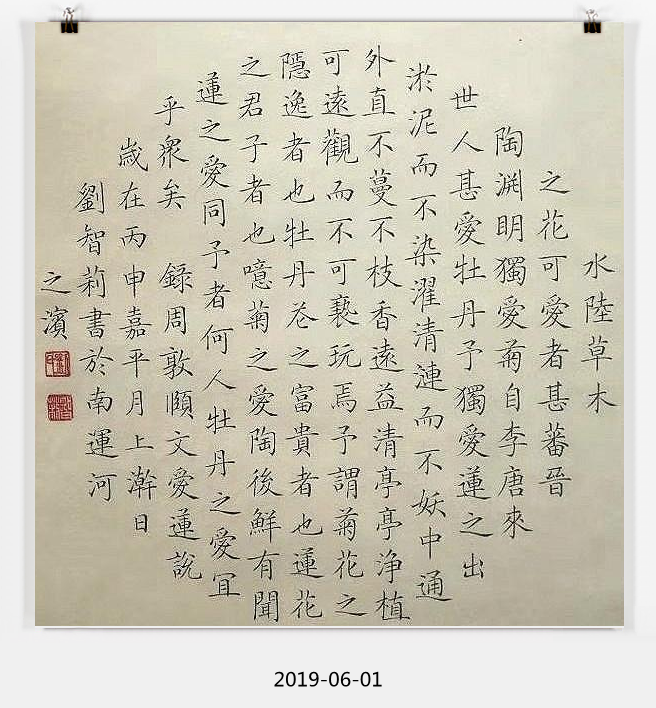 水陸草木
之花可愛者甚蕃晉
陶渊明獨愛菊自李唐來
世人甚愛牡丹予獨愛蓮之出
淤泥而不染濯清漣而不妖中通
外直不蔓不枝香遠益清亭亭浄植
可遠觀而不可褻玩焉予謂菊花之
隱逸者也牡丹芲之富貴者也蓮花
之君子者也噫菊之愛陶後鮮有聞
蓮之愛同予者何人牡丹之愛冝
乎衆矣 録周敦頤文愛蓮説
歲在丙申嘉平月上澣日
劉智莉書於南運河
之濱
2019-06-01